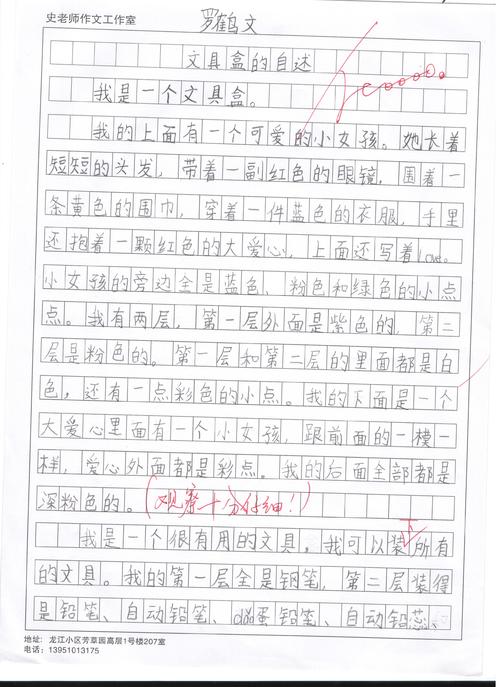 史老师作文工作室
罗鹤文
文具盒的自述
我是一个文具盒。
我的上面有一个可爱的小女孩。她长着
短短的头发，带着一副红色的眼镜，围着一
条黄色的围巾，穿着一件蓝色的衣服，手里
还抱着一颗红色的大爱心，上面还写着Love。
小女孩的旁边全是蓝色、粉色和绿色的小点
点。我有两层，第一层外面是紫色的，第二
层是粉色的。第一层和第二层的里面都是白
色，还有一点彩色的小点。我的下面是一个
大爱心里面有一个小女孩，跟前面的一模一
样，爱心外面都是彩点。我的后面全部都是
深粉色的。(观察十分仔细！)
我是一个很有用的文具。我可以装下所有
的文具。我的第一层全是钢笔，第二层装得
是铅笔、自动铅笔、蛋铅笔、自动铅芯、
地址：龙江小区芳草园高层1号楼207室
电话：13951013175